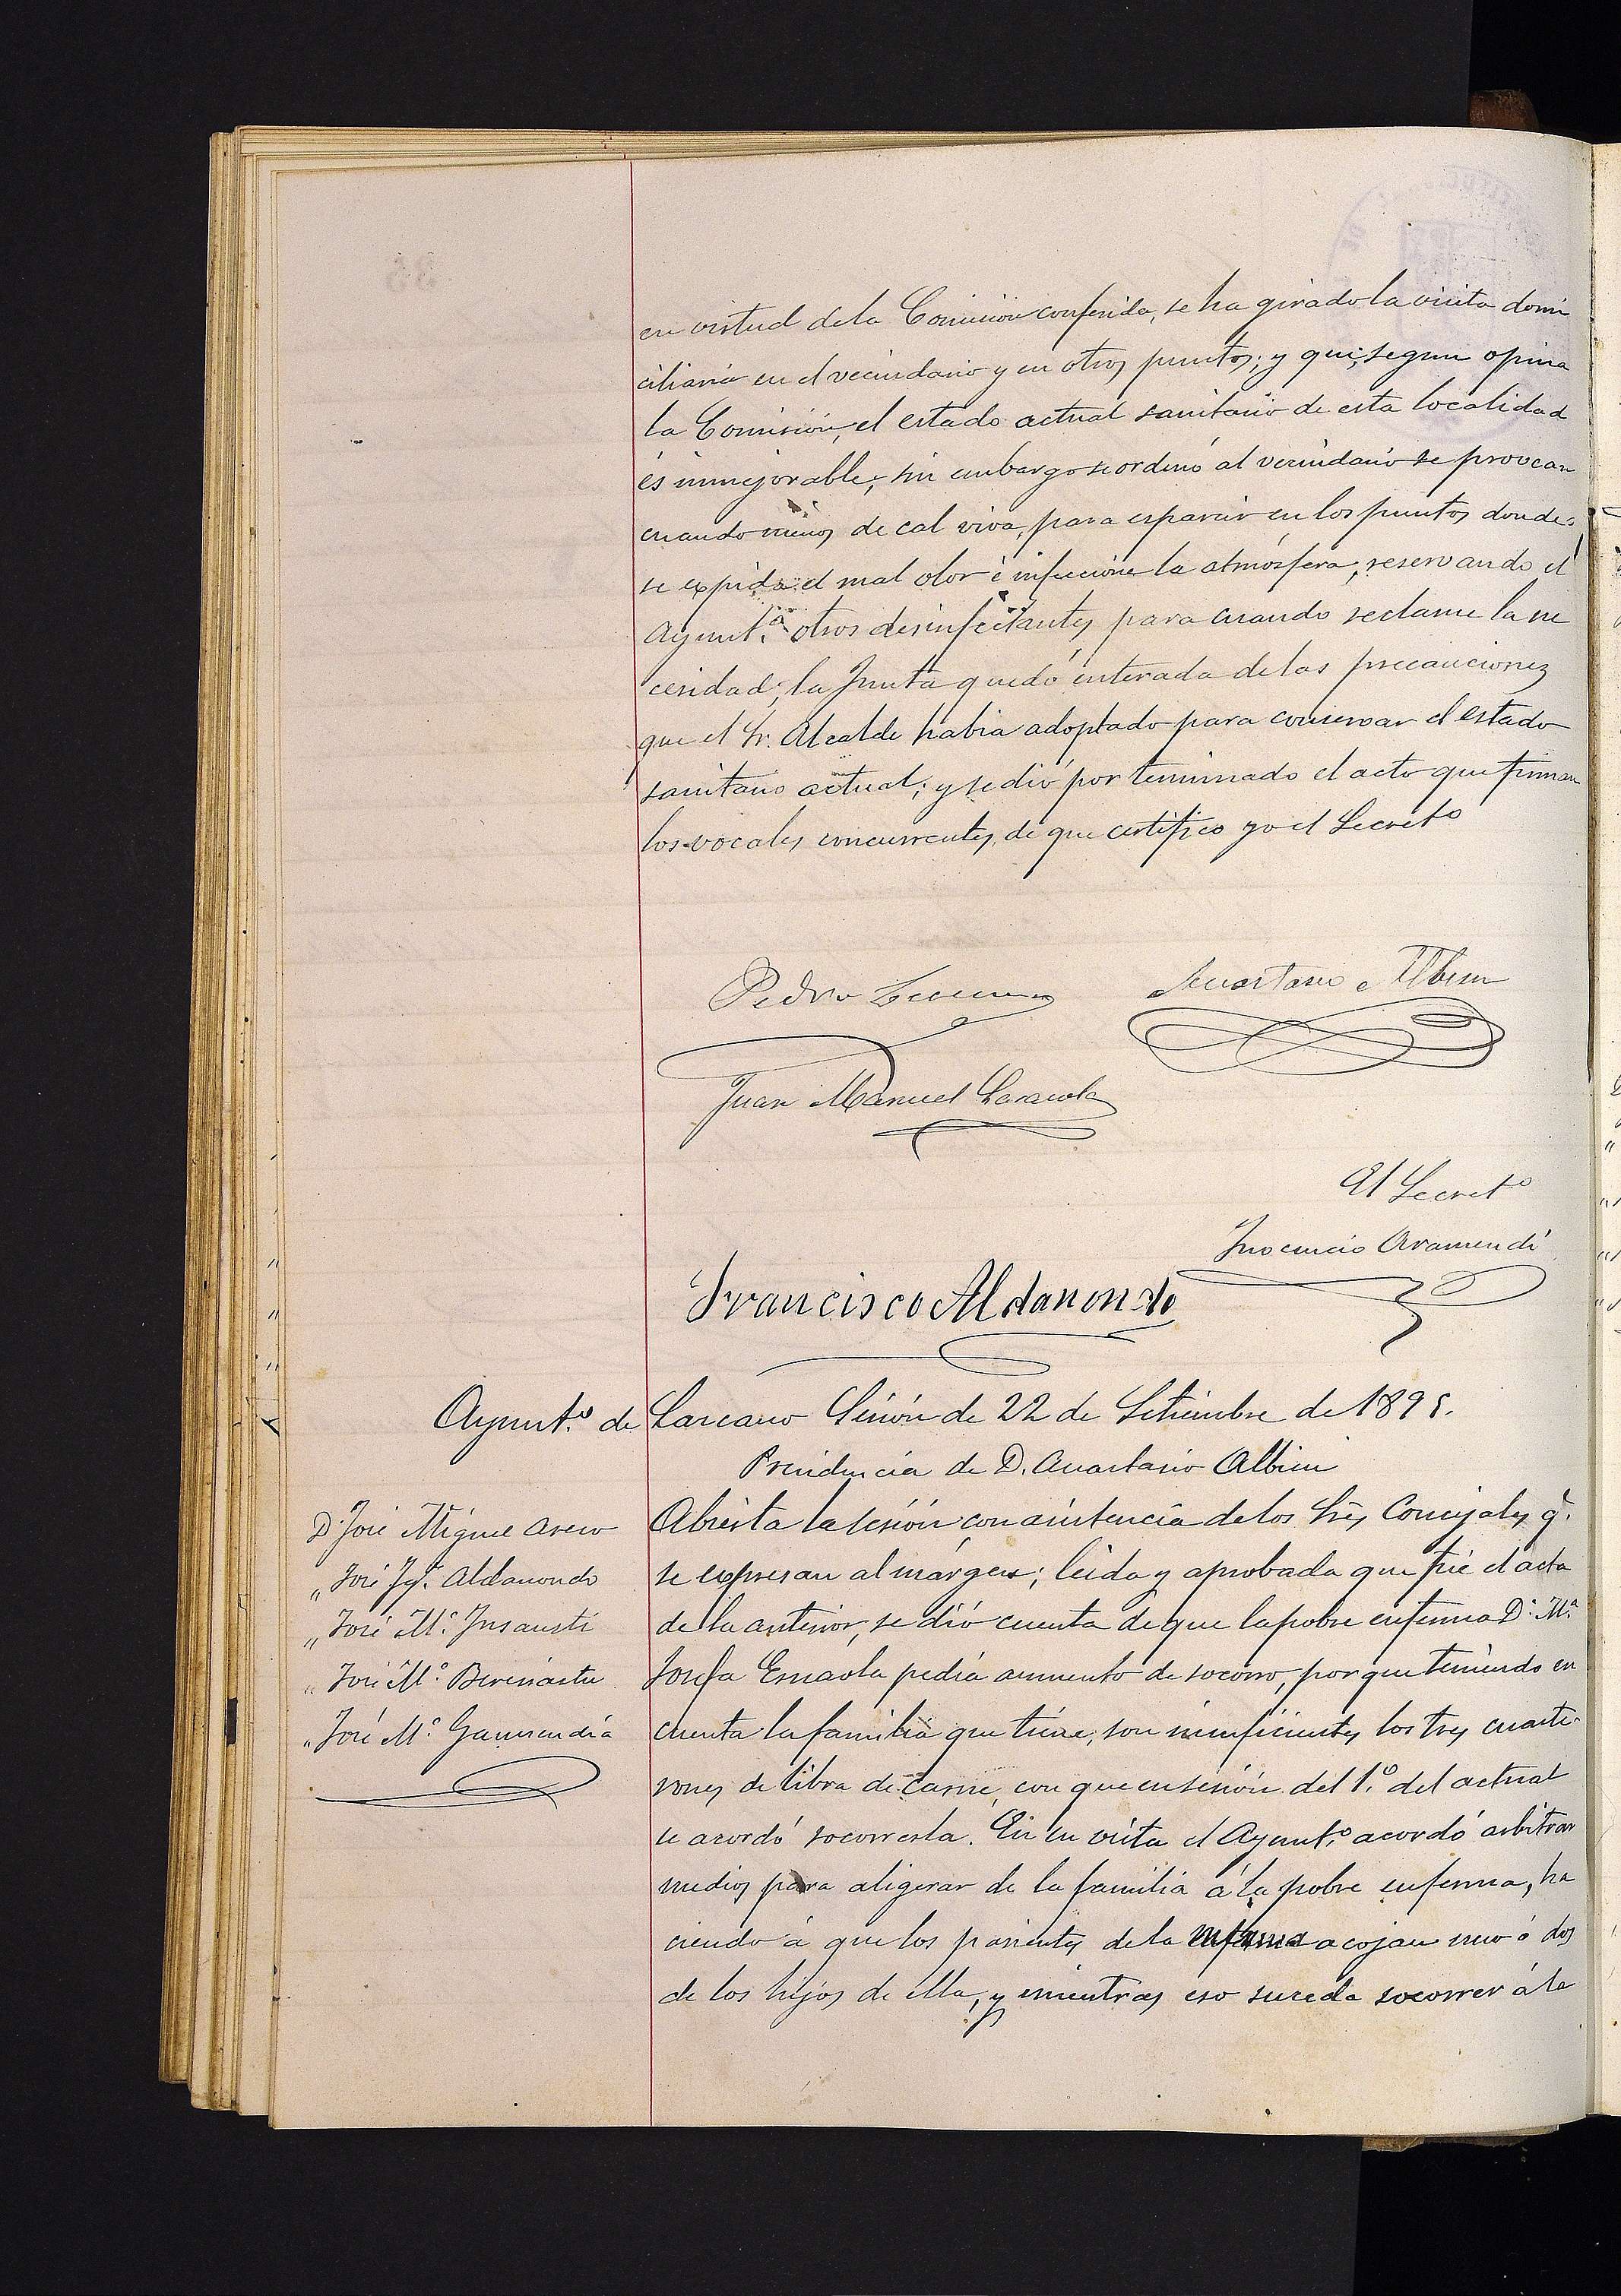 en virtud de la Comision conferida, se ha girado la visita domi
ciliaria en el vecindario y en otros puntos; y que, segun opina
la Comisión, el estado actual sanitario de esta localidad
és inmejorable; sin embargo se ordenó al vecindario se provean
cuando menos de cal viva, para esparcir en los puntos donde
se expida el mal olor é infeccione la atmósfera, reservando el
Ayunt.º otros desinfectantes para cuando reclame la ne
cesidad; la Junta quedó enterada de las precauciones
que el Sr. Alcalde habia adoptado para conservar el estado
sanitario actual; y se dió por terminado el acto que firman
los vocales concurrentes, de que certifico yo el Secretº
Pedro
Anastasio Albisu
Juan Manuel
El Secretº
Inocencio Aramendi
Francisco Aldanondo
Ayunt.º de Lazcano Sesión de 22 de Setiembre de 1895.
Presidencia de D. Anastasio Albisu
D. José Miguel
" José Ig.º Aldanondo
" José M.ª Insausti
" José M.ª Beresiartu
" José M.ª Garmendia
Abierta la sesión con asistencia de los Sres Concejales q.
se expresan al márgen; leida y aprobada que fué el acta
de la anterior, se dió cuenta de que la pobre enferma D.ª M.ª
Josefa Esnaola pedía aumento de socorro, porque teniendo en
cuenta la familia que tiene, son insuficientes los tres cuarte-
rones de libra de carne, con que en sesión del 1.º del actual
se acordó socorrerla. En su vista el Ayunt.º acordó arbitrar
medios para aligerar de la familia á la pobre enferma, ha
ciendo á que los parientes de la enferma acojan uno ó dos
de los hijos de ella, y mientras eso suceda socorrer á la